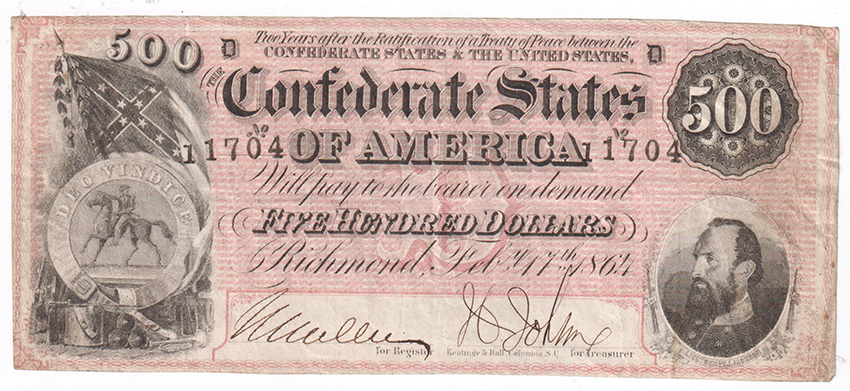 500 D Two Years after the Ratification of a Treaty of Peace between the D
CONFEDERATE STATES & THE UNITED STATES,
THE
Confederate States
500
No 11704 OF AMERICA No 11704
DEO VINDICE
Will pay to the bearer on demand
FIVE HUNDRED DOLLARS
Richmond, Feby. 17th 1864
for Register Keatinge & Ball, Columbia, S.C. for Treasurer